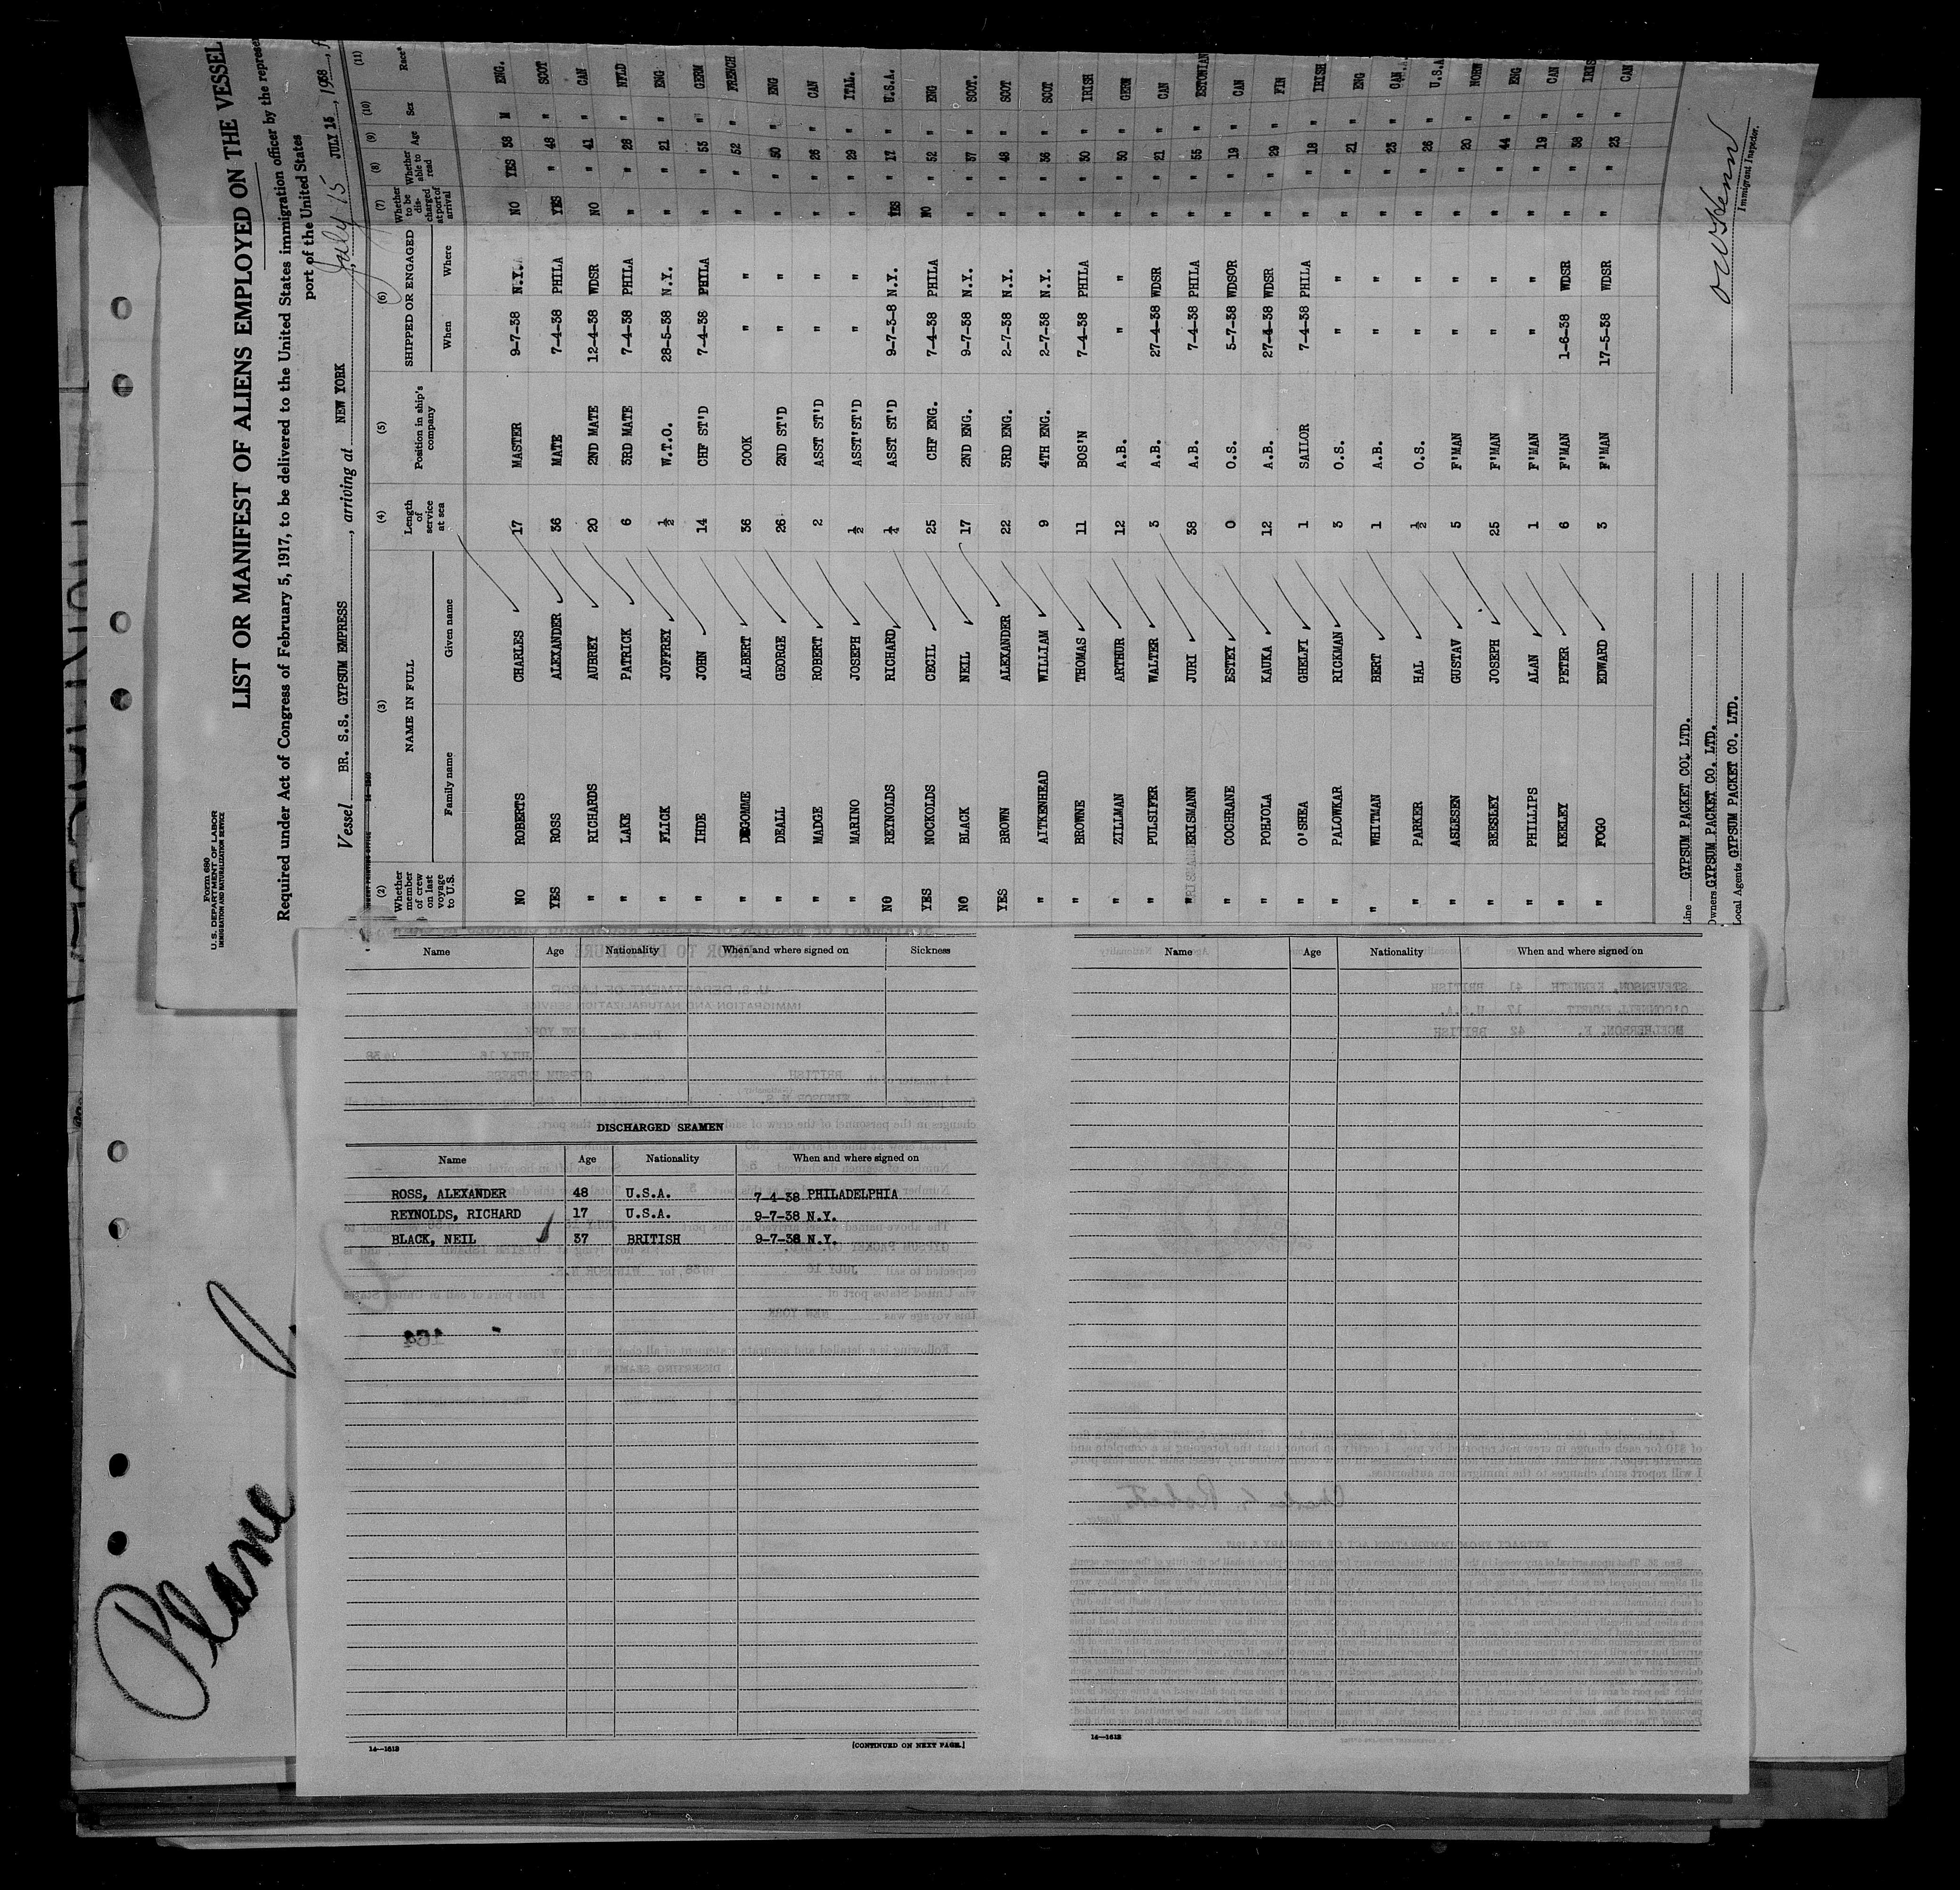 Form 680
U. S. DEPARTMENT OF LABOR
IMMIGRATION AND NATURALIZATION SERVICE
LIST OR MANIFEST OF ALIENS EMPLOYED ON THE VESSEL
Required under Act of Congress of February 5, 1917, to be delivered to the United States immigration officer by the represe
port of the United States
July 15
Vessel BR. S.S. GYPSUM EMPRESS, arriving at NEW YORK JULY 15, 1938
(2) (3) (4) (5) (6) (7) (8) (9) (10) (11)
Whether member of crew on last voyage to U.S. NAME IN FULL Family name Given name Length of service at sea Position in ship's company SHIPPED OR ENGAGED When Where Whether to be discharged at port of arrival Whether able to read Age Sex Race
NO ROBERTS CHARLES 17 MASTER 9-7-38 N.Y. NO YES 38 M ENG.
YES ROSS ALEXANDER 36 MATE 7-4-38 PHILA YES " 48 " SCOT
" RICHARDS AUBREY 20 2ND MATE 12-4-38 WDSR NO " 41 " CAN
" LAKE PATRICK 6 3RD MATE 7-4-38 PHILA " " 26 " NFLD
" FLICK JOFFREY ½ W.T.O. 28-5-38 N.Y. " " 21 " ENG
" IHDE JOHN 14 CHF ST'D 7-4-38 PHILA " " 53 " GERM
" DEGOMME ALBERT 36 COOK " " " " 52 " FRENCH
" DEALL GEORGE 26 2ND ST'D " " " " 50 " ENG
" MADGE ROBERT 2 ASST ST'D " " " " 26 " CAN
" MARINO JOSEPH ½ ASST'ST'D " " " " 29 " ITAL.
NO REYNOLDS RICHARD ¼ ASST ST'D 9-7-3-8 N.Y. YES " 17 " U.S.A.
YES NOCKOLDS CECIL 25 CHF ENG. 7-4-38 PHILA NO " 52 " ENG
NO BLACK NEIL 17 2ND ENG. 9-7-38 N.Y. " " 37 " SCOT.
YES BROWN ALEXANDER 22 3RD ENG. 2-7-38 N.Y. " " 48 " SCOT
" AITKENHEAD WILLIAM 9 4TH ENG. 2-7-38 N.Y. " " 36 " SCOT
" BROWNE THOMAS 11 BOS'N 7-4-38 PHILA " " 30 " IRISH
" ZILLMAN ARTHUR 12 A.B. " " " " 30 " GEM
" PULSIFER WALTER 3 A.B. 27-4-38 WDSR " " 21 " CAN
" ERISMANN JURI 38 A.B. 7-4-38 PHILA " " 55 " ESTONIAN
" COCHRANE ESTEY 0 O.S. 5-7-38 WDSOR " " 19 " CAN
" POHJOLA KAUKA 12 A.B. 27-4-38 WDSR " " 29 " FIN
" O'SHEA GHELFI 1 SAILOR 7-4-38 PHILA " " 18 " IRISH
" PALOWKAR RICKMAN 3 O.S. " " " " 21 " ENG
" WHITMAN BERT 1 A.B. " " " " 23 " CAN.
" PARKER HAL ½ O.S. " " " " 26 " U.S.A
" ASLESEN GUSTAV 5 F'MAN " " " " 20 " NORW
" BEESLEY JOSEPH 25 F'MAN " " " " 44 " ENG
" PHILLIPS ALAN 1 F'MAN " " " " 19 " CAN
" KEELEY PETER 6 F'MAN 1-6-38 WDSR " " 38 " IRIS
" FOGO EDWARD 3 F'MAN 17-5-38 WDSR " " 23 " CAN
Line GYPSUM PACKET COL LTD.
Owners GYPSUM PACKET CO. LTD.
Local Agents GYPSUM PACKET CO. LTD.
Immigrant Inspector.
Name Age Nationality When and where signed on Sickness
DISCHARGED SEAMEN
Name Age Nationality When and where signed on
ROSS, ALEXANDER 48 U.S.A. 7-4-38 PHILADELPHIA
REYNOLDS, RICHARD 17 U.S.A. 9-7-38 N.Y.
BLACK, NEIL 37 BRITISH 9-7-38 N.Y.
14—1613
[CONTINUED ON NEXT PAGE.]
Name Age Nationality When and where signed on
14—1613